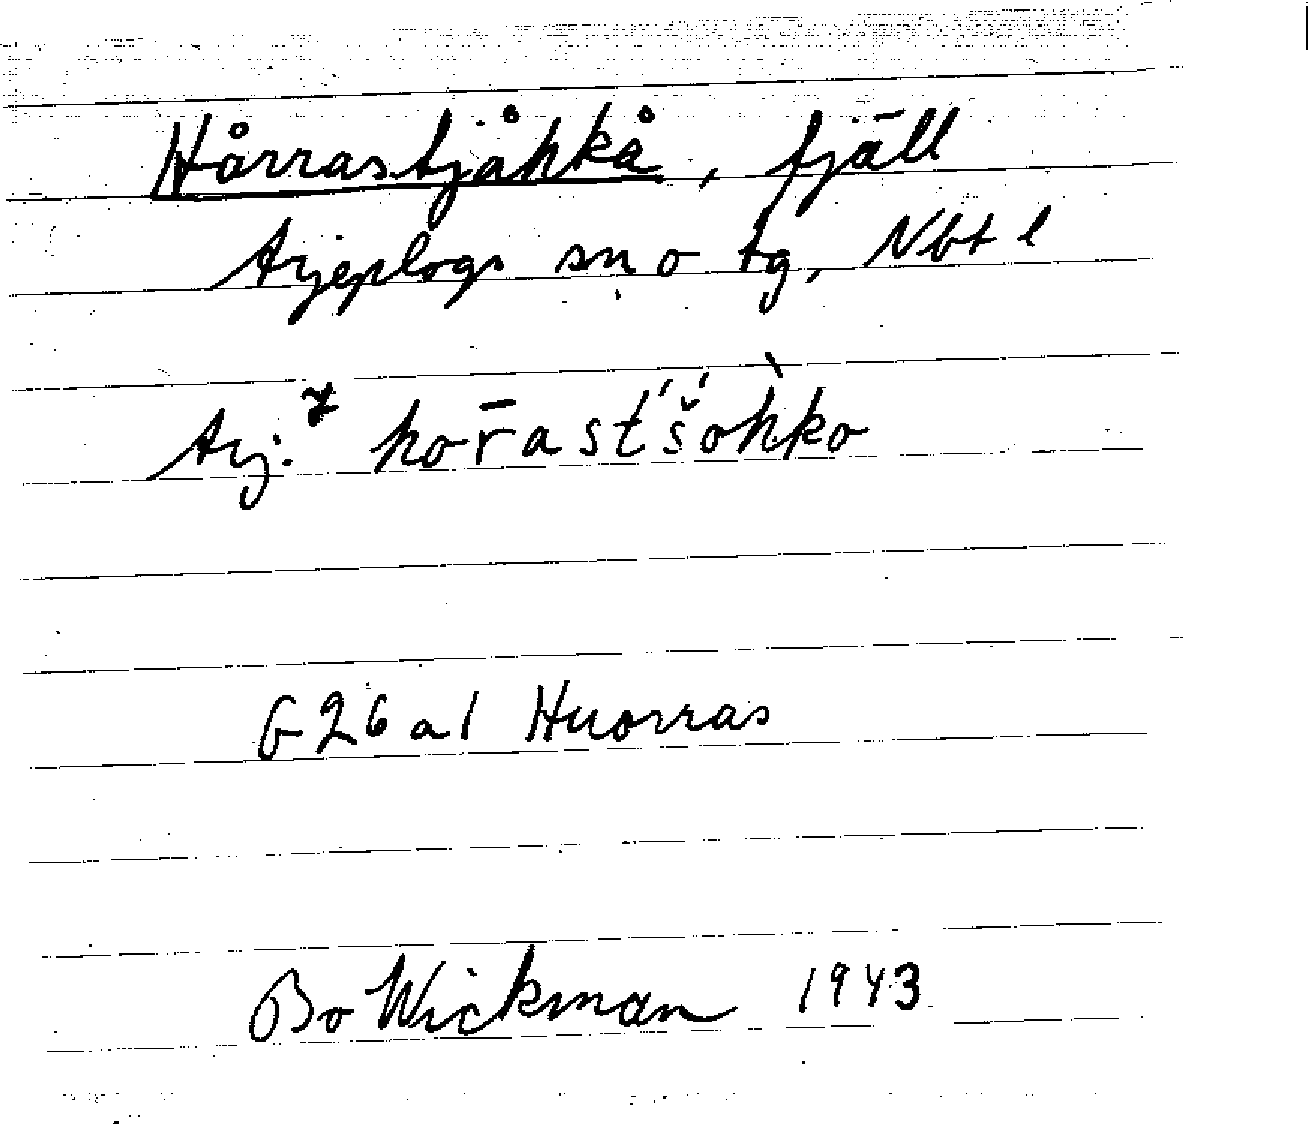 Hårrastjåhkå, fjäll
Arjeplogs sn o tg, Nbt l
Arj. hor̄ast́'š́ohko
G 26 a 1 Huorras
Bo Wickman 1943